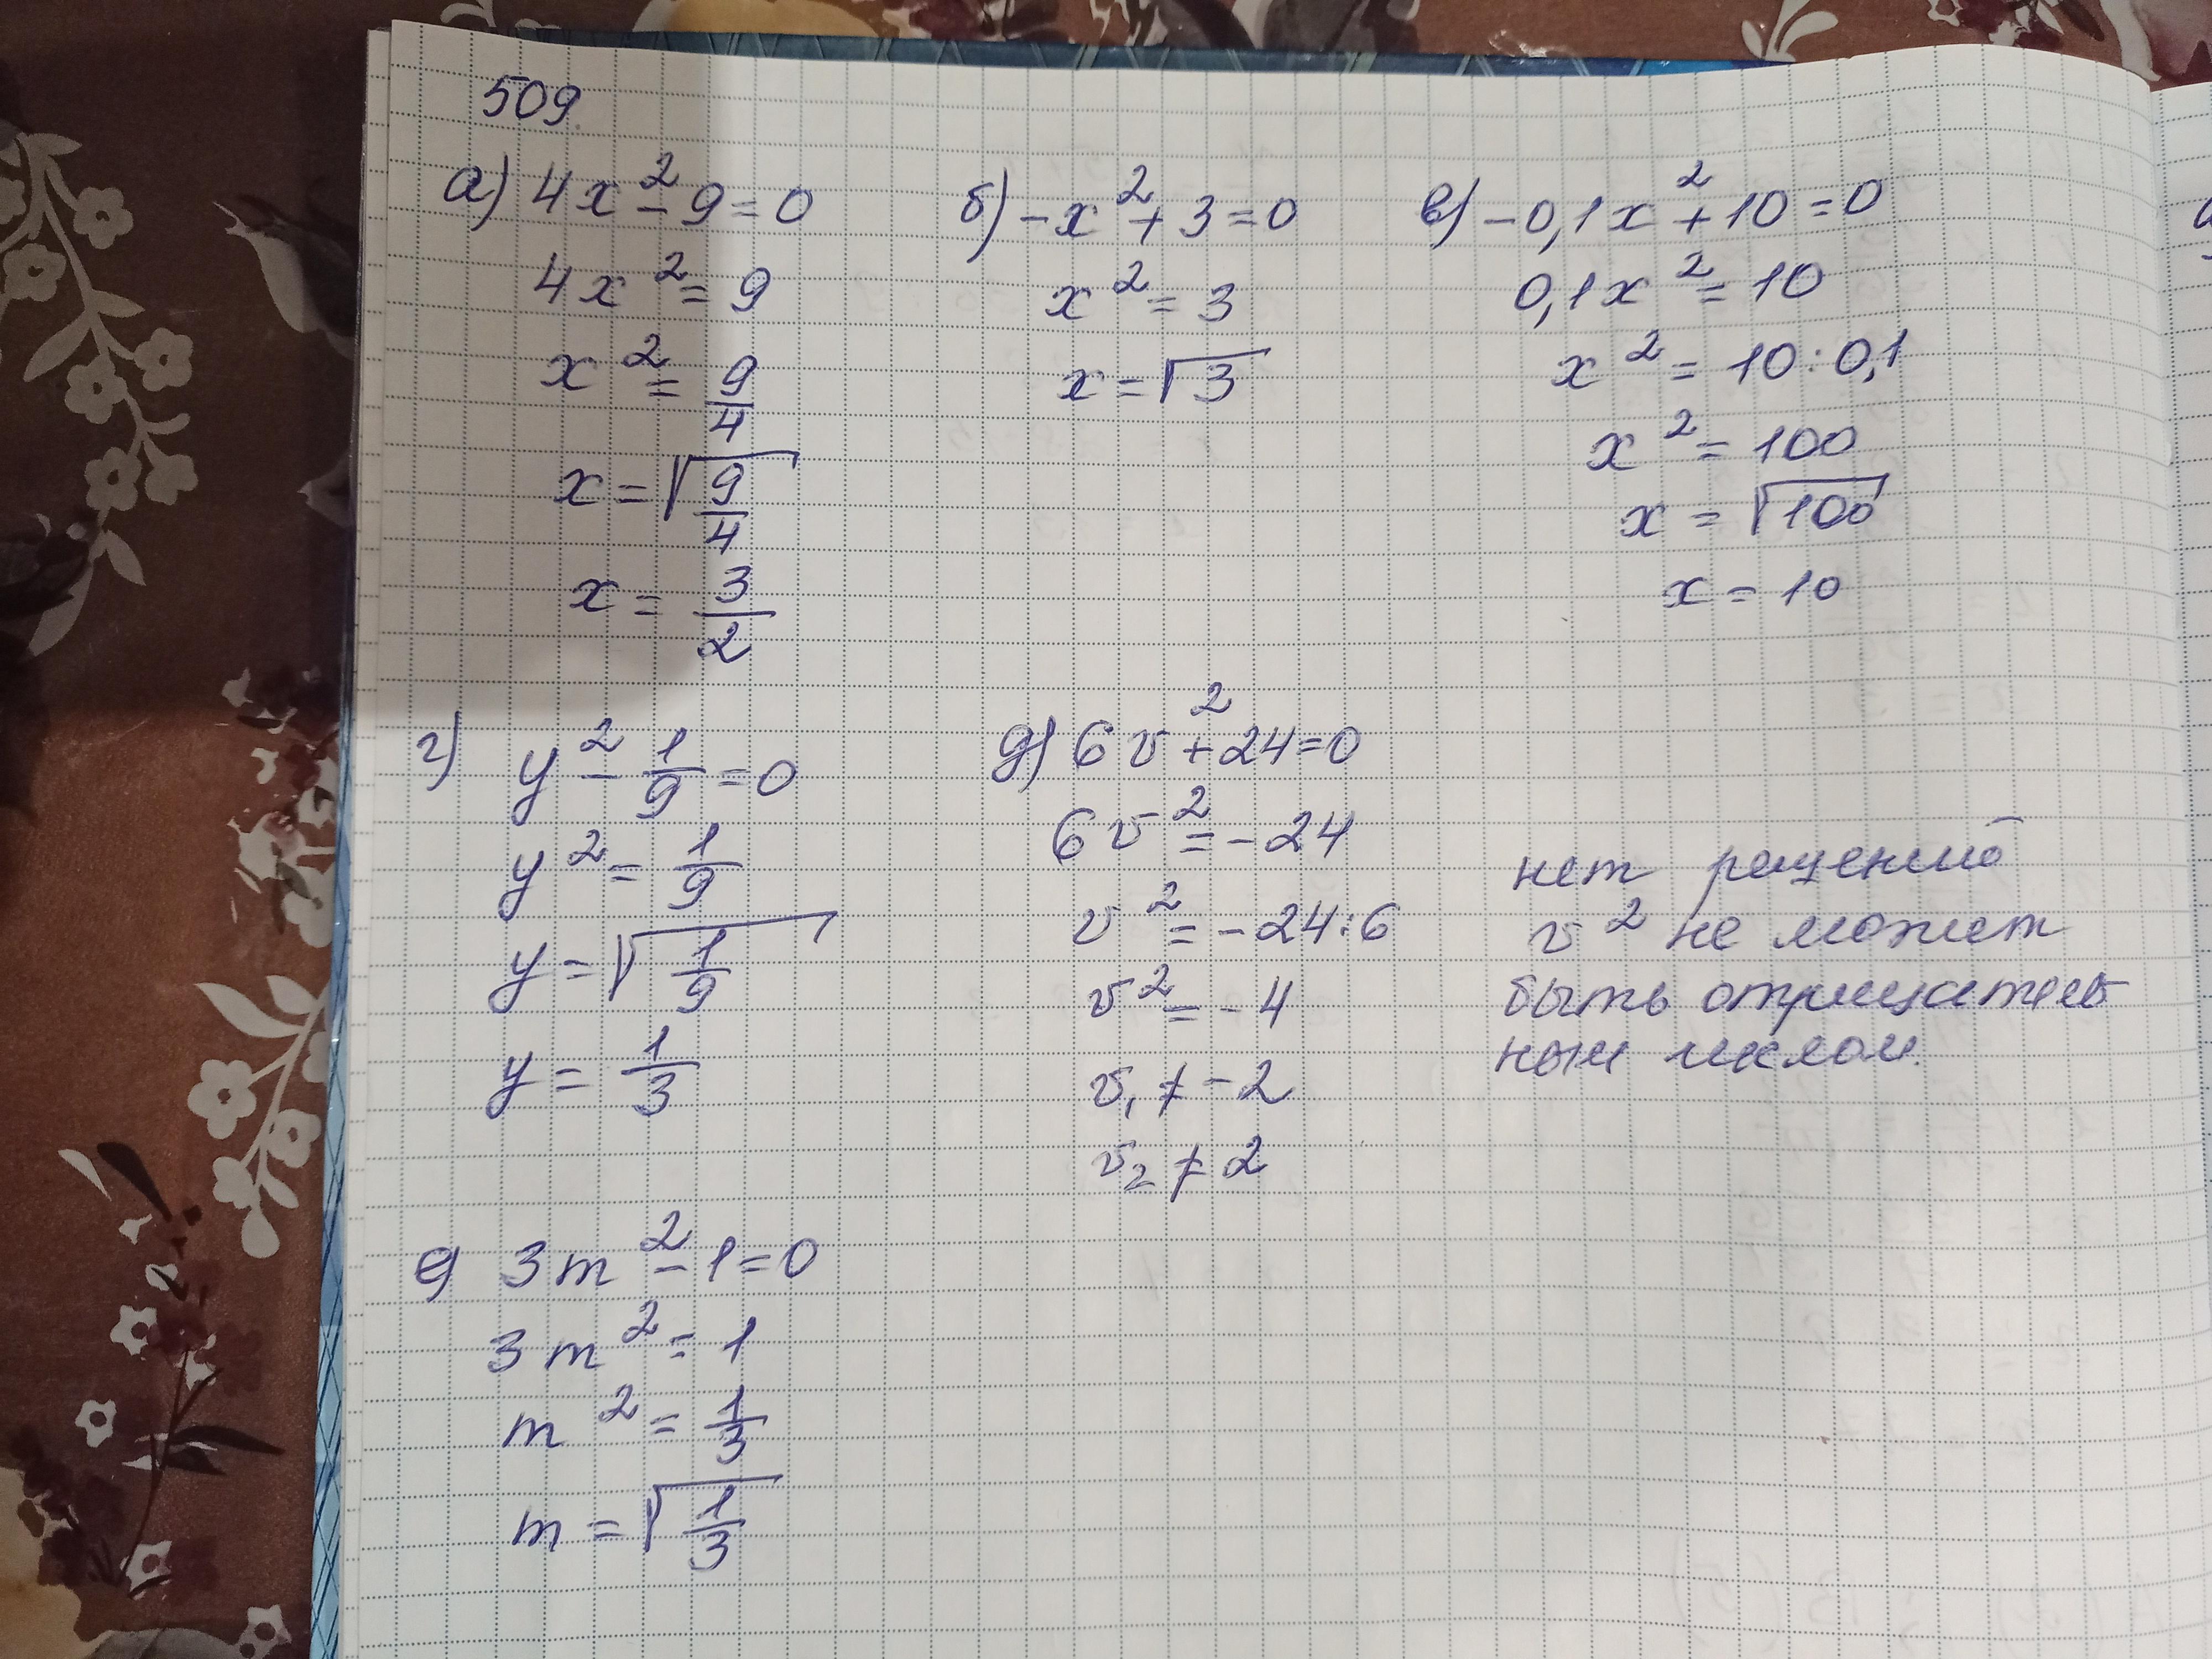 509.
а) 4x² - 9 = 0
4x² = 9
x² = 9/4
x = √(9/4)
x = 3/2
б) -x² + 3 = 0
x² = 3
x = √3
в) -0,1x² + 10 = 0
0,1x² = 10
x² = 10 : 0,1
x² = 100
x = √100
x = 10
г) y² - 1/9 = 0
y² = 1/9
y = √(1/9)
y = 1/3
д) 6v² + 24 = 0
6v² = -24
v² = -24 : 6
v² = -4
v₁ ≠ -2
v₂ ≠ 2
нет решений
v² не может
быть отрицатель
ным числом.
е) 3m² - 1 = 0
3m² = 1
m² = 1/3
m = √(1/3)